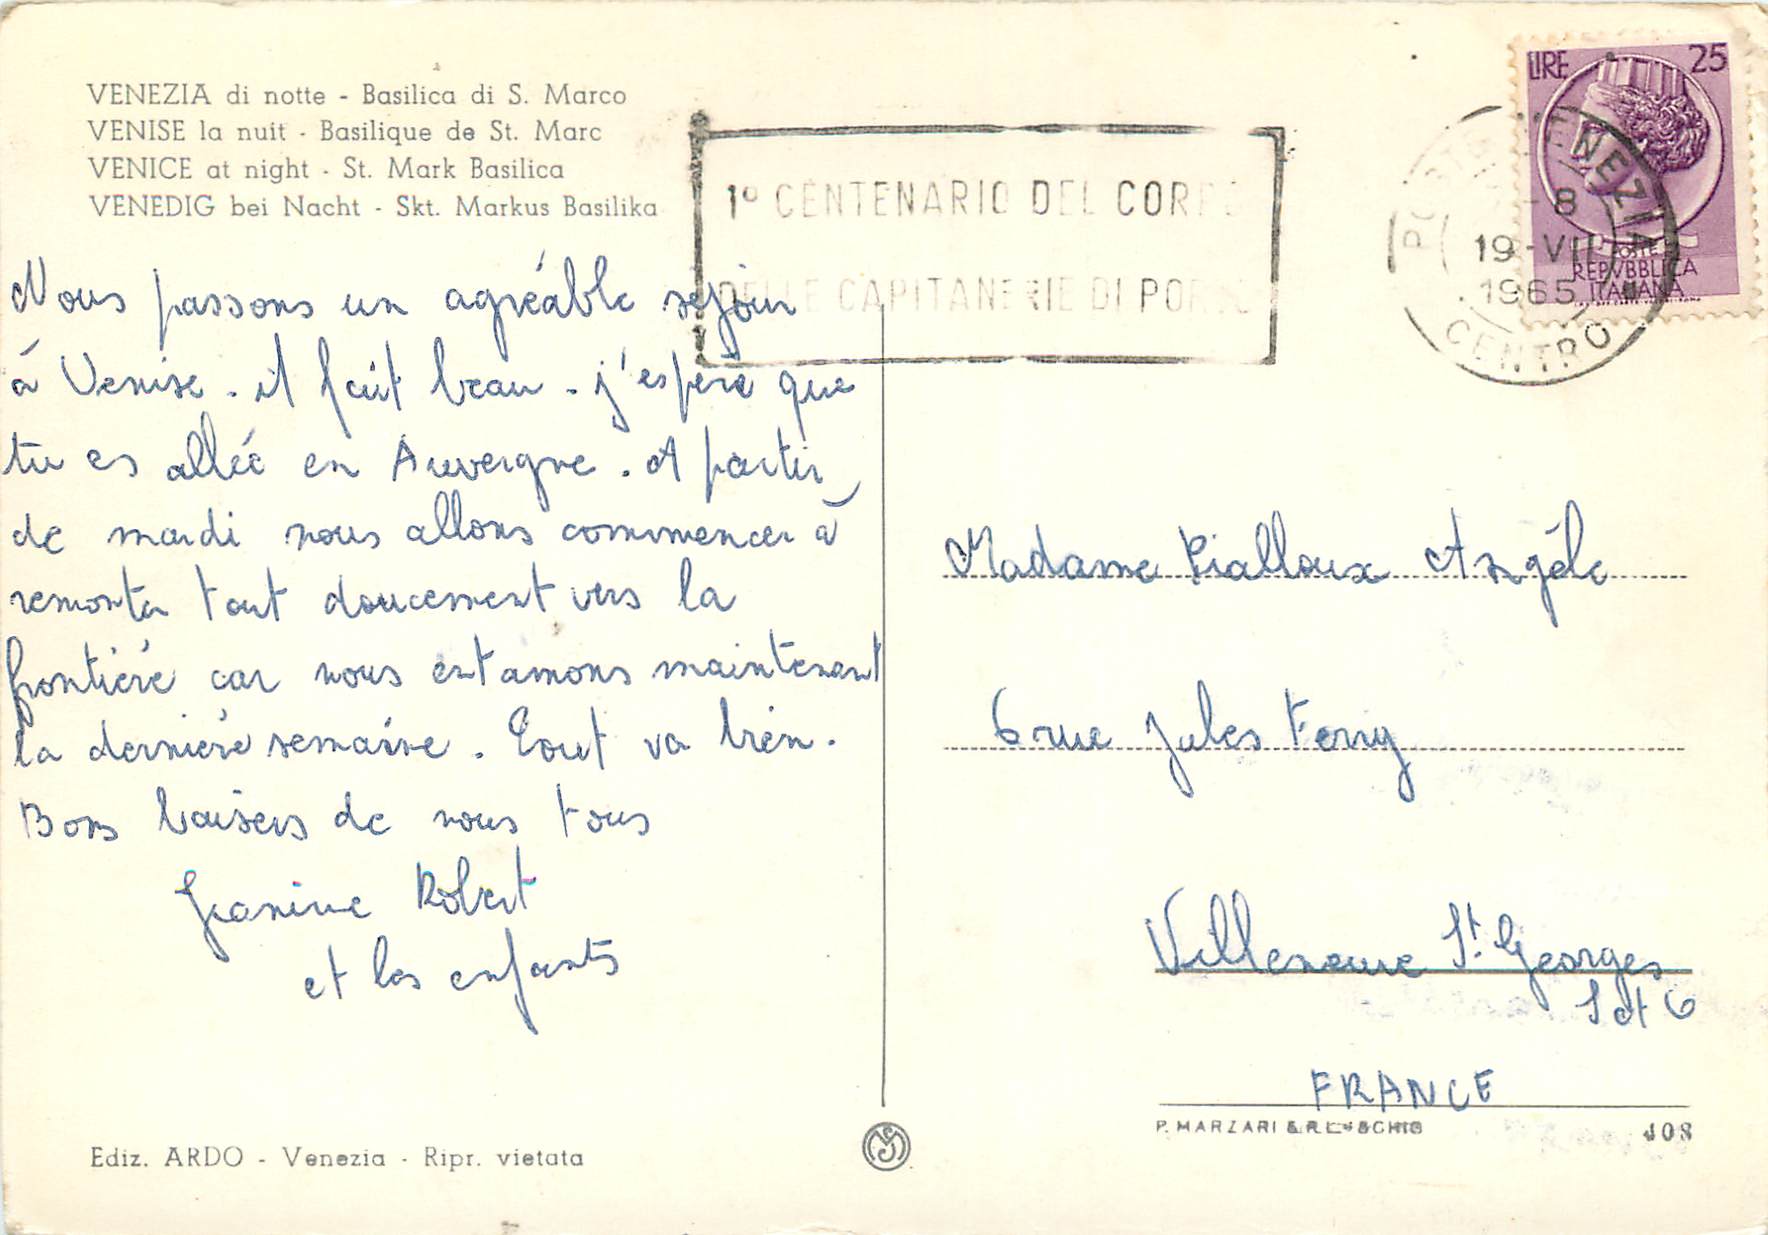 VENEZIA di notte - Basilica di S. Marco
VENISE la nuit - Basilique de St. Marc
VENICE at night - St. Mark Basilica
VENEDIG bei Nacht - Skt. Markus Basilika
Nous passons un agréable séjour
à Venise. il fait beau. j'espère que
tu es allée en Auvergne. A partir
de mardi nous allons commencer à
remonter tout doucement vers la
frontière car nous entamons maintenant
la dernière semaine. Tout va bien.
Bons baisers de nous tous
Jeanine Robert
et les enfants
Ediz. ARDO - Venezia - Ripr. vietata
1º CENTENARIO DEL CORP
DELLE CAPITANERIE DI POR
LIRE 25
POSTE
REPVBBLICA
ITALIANA
VENEZIA
8
19-VII
1965
CENTRO
Madame Pialloux Angèle
6 rue Jules Ferry
Villeneuve St. Georges
S et O
FRANCE
P. MARZARI
408